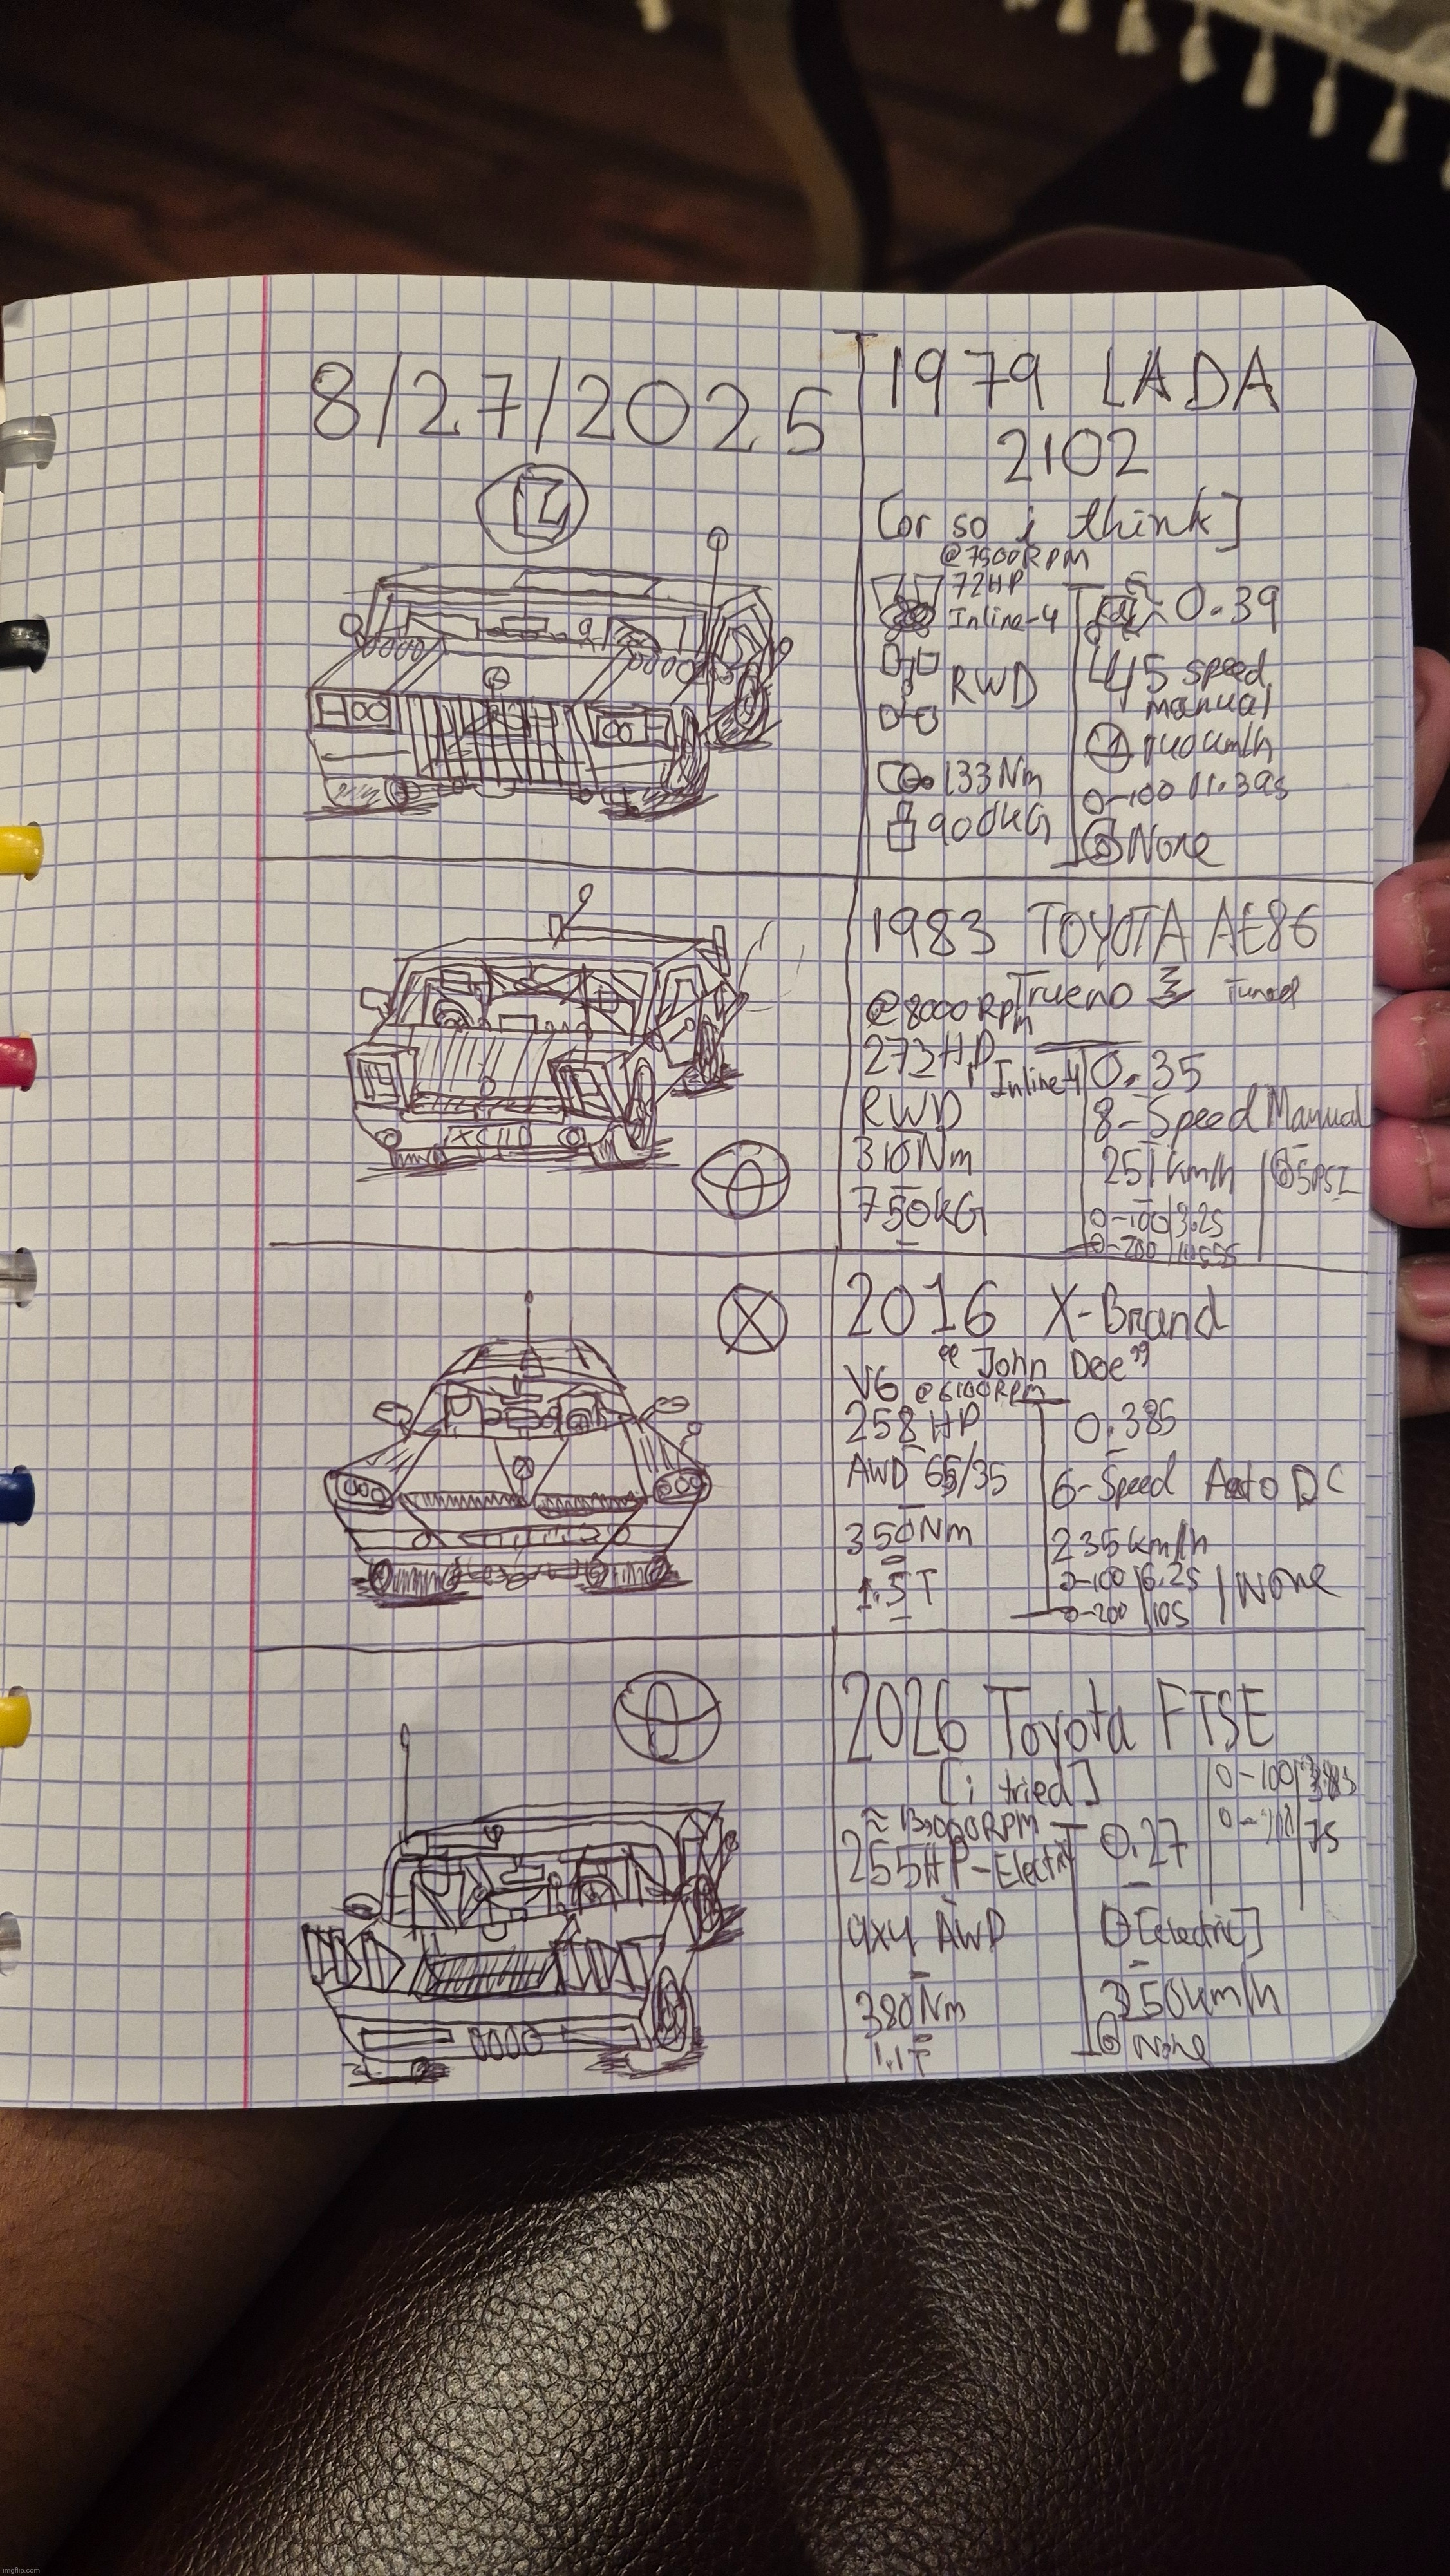 8/27/2025
1979 LADA
2102
[or so i think]
@7500RPM
72HP
Inline-4
RWD
133Nm
900KG
0.39
5 speed
manual
140km/h
0-100 11.39s
None
1983 TOYOTA AE86
Trueno
Tuned
@8000RPM
273HP
Inline-4
RWD
310Nm
750KG
0.35
8-Speed Manual
251km/h
@5PSI
0-100|3.2s
0-200
2016 X-Brand
"John Doe"
V6 @6100RPM
258HP
AWD 65/35
350Nm
1.5T
0.385
6-Speed Auto DC
235km/h
0-100|6.2s
0-200|10s
None
2026 Toyota FTSE
[i tried]
≈13,000RPM
255HP-Electric
4x4 AWD
380Nm
1.1T
0.27
0-100
7s
[electric]
350km/h
None
imgflip.com